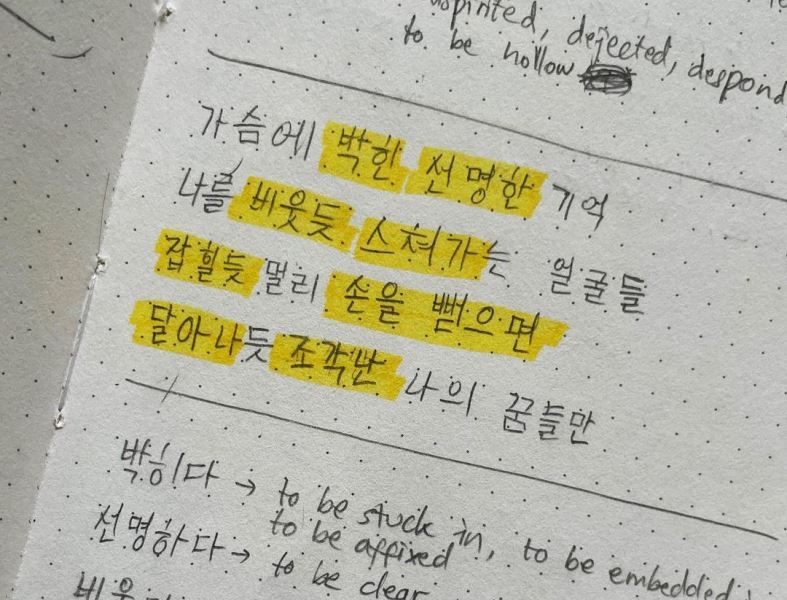 dejected, despond
to be hollow
가슴에 박힌 선명한 기억
나를 비웃듯 스쳐가는 얼굴들
잡힐듯 멀리 손을 뻗으면
달아나듯 조각난 나의 꿈들만
박히다 → to be stuck in, to be embedded,
to be affixed
선명하다 → to be clear